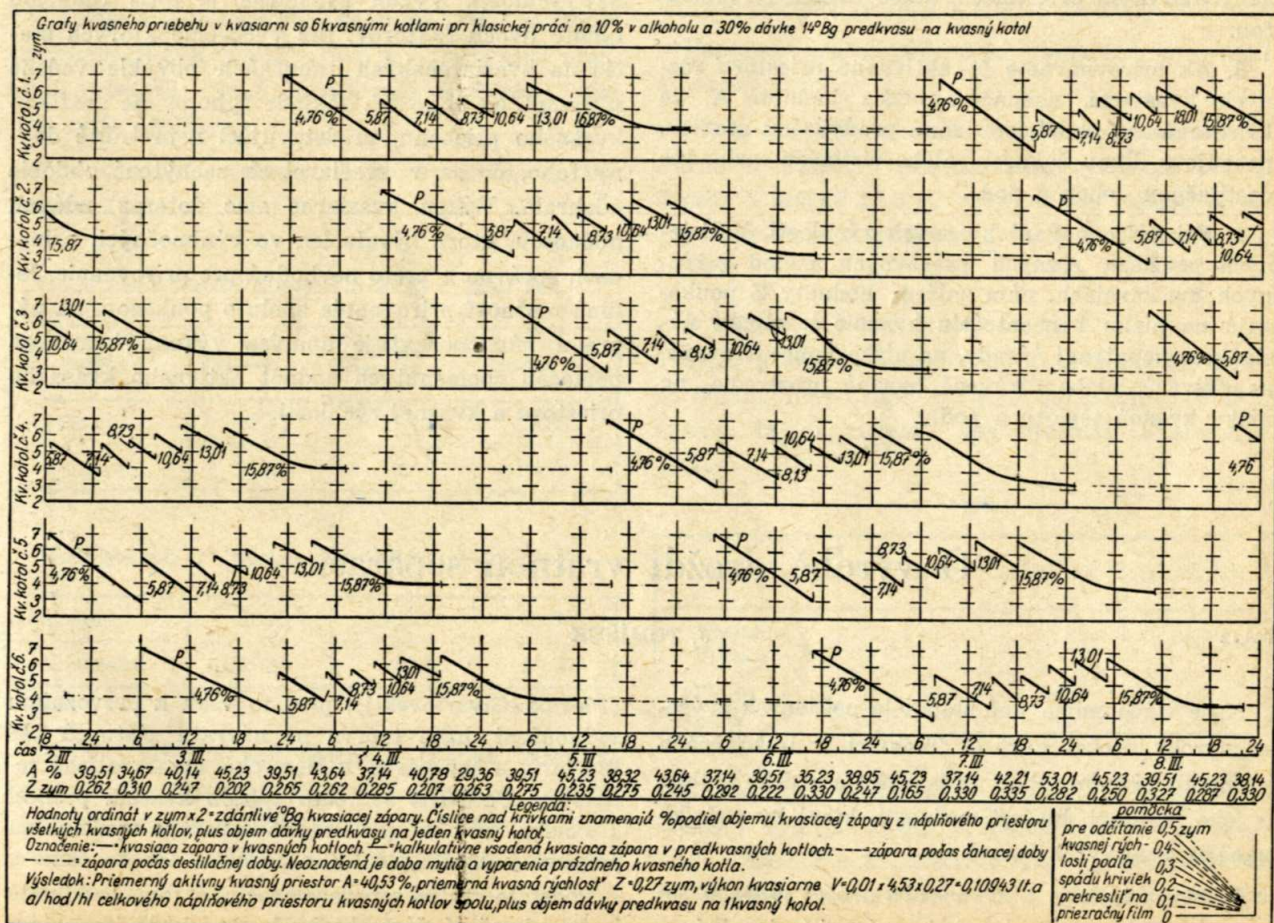 Grafy kvasného priebehu v kvasiarni so 6 kvasnými kotlami pri klasickej práci na 10% v alkoholu a 30% dávke 14°Bg predkvasu na kvasný kotol
Kv. kotol č.1. zym
7 6 5 4 3 2
P 4,76% 5,87 7,14 8,73 10,64 13,01 15,87% P 4,76% 5,87 7,14 8,73 10,64 18,01 15,87%
Kv. kotol č.2.
7 6 5 4 3 2
15,87 P 4,76% 5,87 7,14 8,73 10,64 13,01 15,87% P 4,76% 5,87 7,14 8,73 10,64
Kv. kotol č.3
7 6 5 4 3 2
10,64 13,01 15,87% P 4,76% 5,87 7,14 8,13 10,64 13,01 15,87% P 4,76% 5,87
Kv. kotol č.4.
7 6 5 4 3 2
5,87 7,14 8,73 10,64 13,01 15,87% P 4,76% 5,87 7,14 8,13 10,64 13,01 15,87% P 4,76
Kv. kotol č.5.
7 6 5 4 3 2
P 4,76% 5,87 7,14 8,73 10,64 13,01 15,87% P 4,76% 5,87 7,14 8,73 10,64 13,01 15,87%
Kv. kotol č.6.
7 6 5 4 3 2
P 4,76% 5,87 7,14 8,73 10,64 13,01 15,87% P 4,76% 5,87 7,14 8,73 10,64 13,01 15,87%
čas 18 24 6 12 18 24 6 12 18 24 6 12 18 24 6 12 18 24 6 12 18 24 6 12 18 24
2.III 3.III. 4.III. 5.III. 6.III. 7.III. 8.III.
A % 39,51 34,67 40,14 45,23 39,51 43,64 37,14 40,78 29,36 39,51 45,23 38,32 43,64 37,14 39,51 35,23 38,95 45,23 37,14 42,21 53,01 45,23 39,51 45,23 38,14
Z zym 0,262 0,310 0,247 0,202 0,265 0,262 0,285 0,207 0,263 0,275 0,235 0,275 0,245 0,292 0,222 0,330 0,247 0,165 0,330 0,335 0,282 0,250 0,327 0,287 0,330
Legenda:
Hodnoty ordinát v zym x 2 = zdánlivé °Bg kvasiacej zápary. Číslice nad krivkami znamenajú % podiel objemu kvasiacej zápary z náplňového priestoru
všetkých kvasných kotlov, plus objem dávky predkvasu na jeden kvasný kotol.
Označenie: — kvasiaca zápara v kvasných kotloch. P = kalkulatívne vsadená kvasiaca zápara v predkvasných kotloch. ---- zápara počas čakacej doby
-·-·- zápara počas destilačnej doby. Neoznačená je doba mytia a vyparenia prázdneho kvasného kotla.
Výsledok: Priemerný aktívny kvasný priestor A=40,53%, priemerná kvasná rýchlosť Z=0,27 zym, výkon kvasiarne V=0,01 x 4,53 x 0,27=0,10943 lt.a
a/hod/hl celkového náplňového priestoru kvasných kotlov spolu, plus objem dávky predkvasu na 1 kvasný kotol.
pomôcka
pre odčítanie 0,5 zym
kvasnej rých- 0,4
losti podľa 0,3
spádu kriviek 0,2
prekresliť na 0,1
priezračný film 0